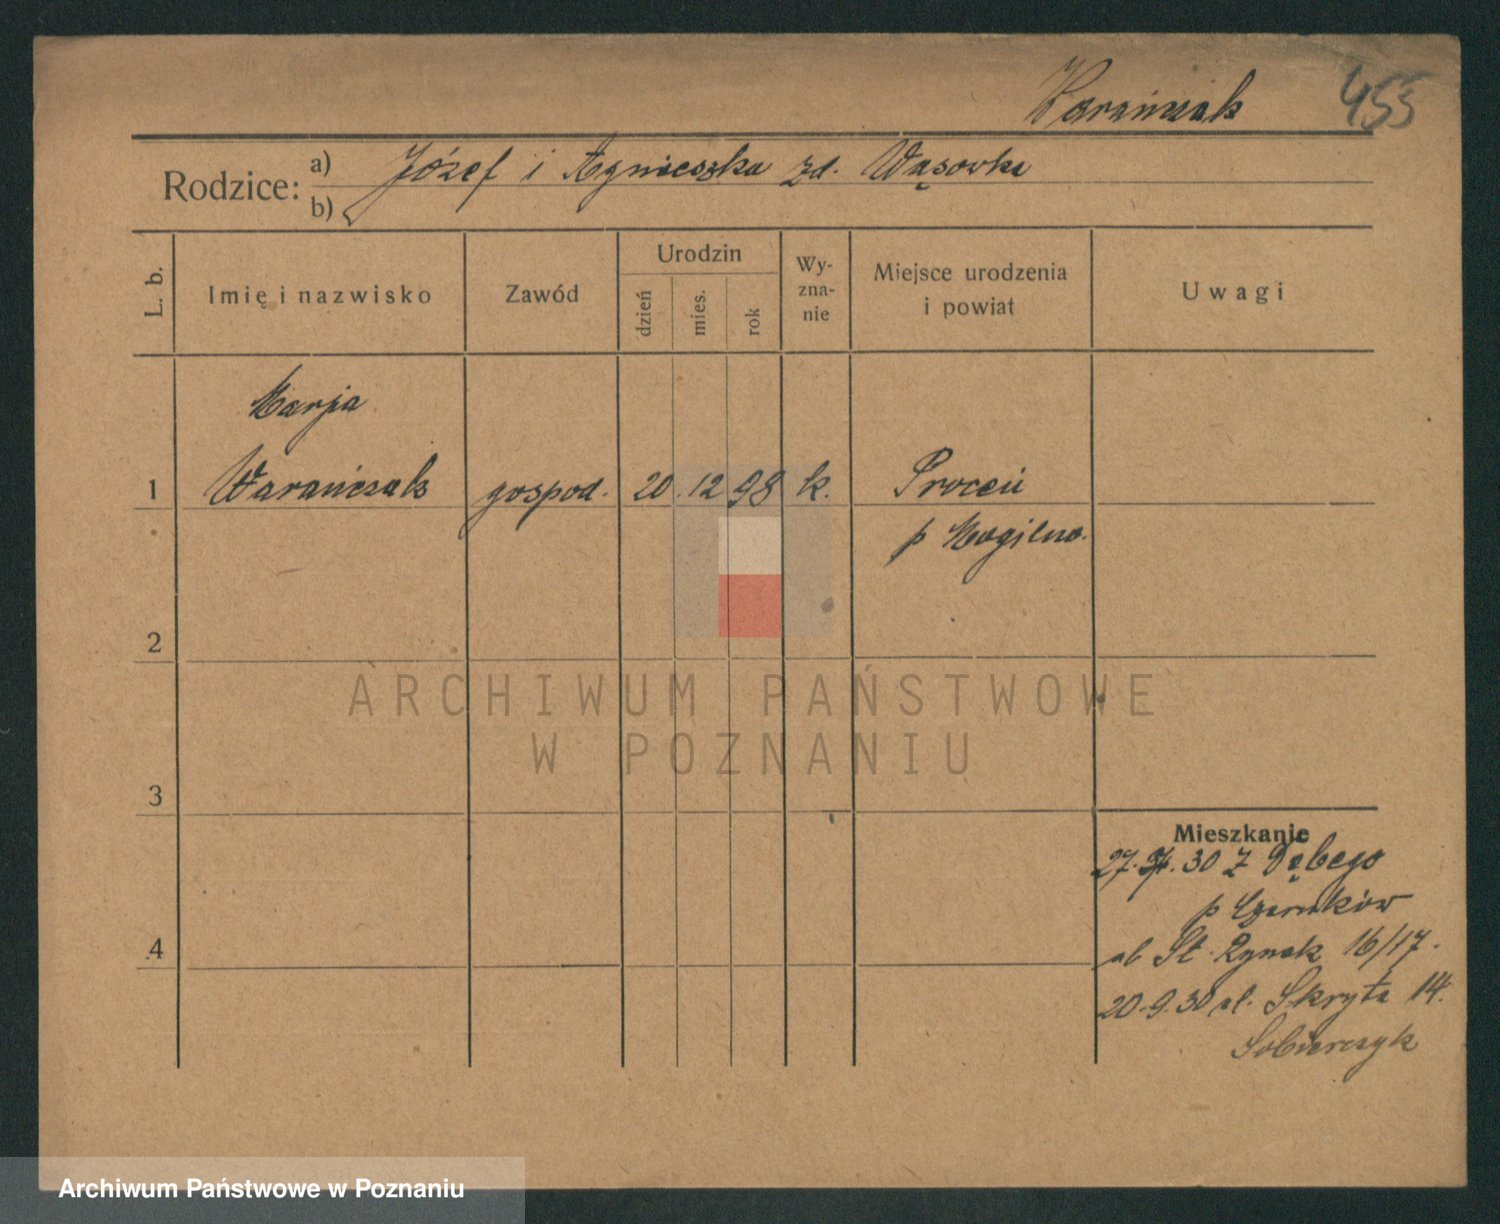 Warańczak 455
Rodzice: a) Józef i Agnieszka zd. Wąsowka
b)
L. b. Imię i nazwisko Zawód Urodzin dzień mies. rok Wy-zna-nie Miejsce urodzenia i powiat Uwagi
Marja
1 Warańczak gospod. 20. 12 98 k. Proceń
p Mogilno.
2
ARCHIWUM PAŃSTWOWE
W POZNANIU
3
Mieszkanie
27. 30 z Dębego
p Czarnków
4
St. Rynek 16/17.
20.9.30 ul. Skryta 14.
Sobierczyk
Archiwum Państwowe w Poznaniu